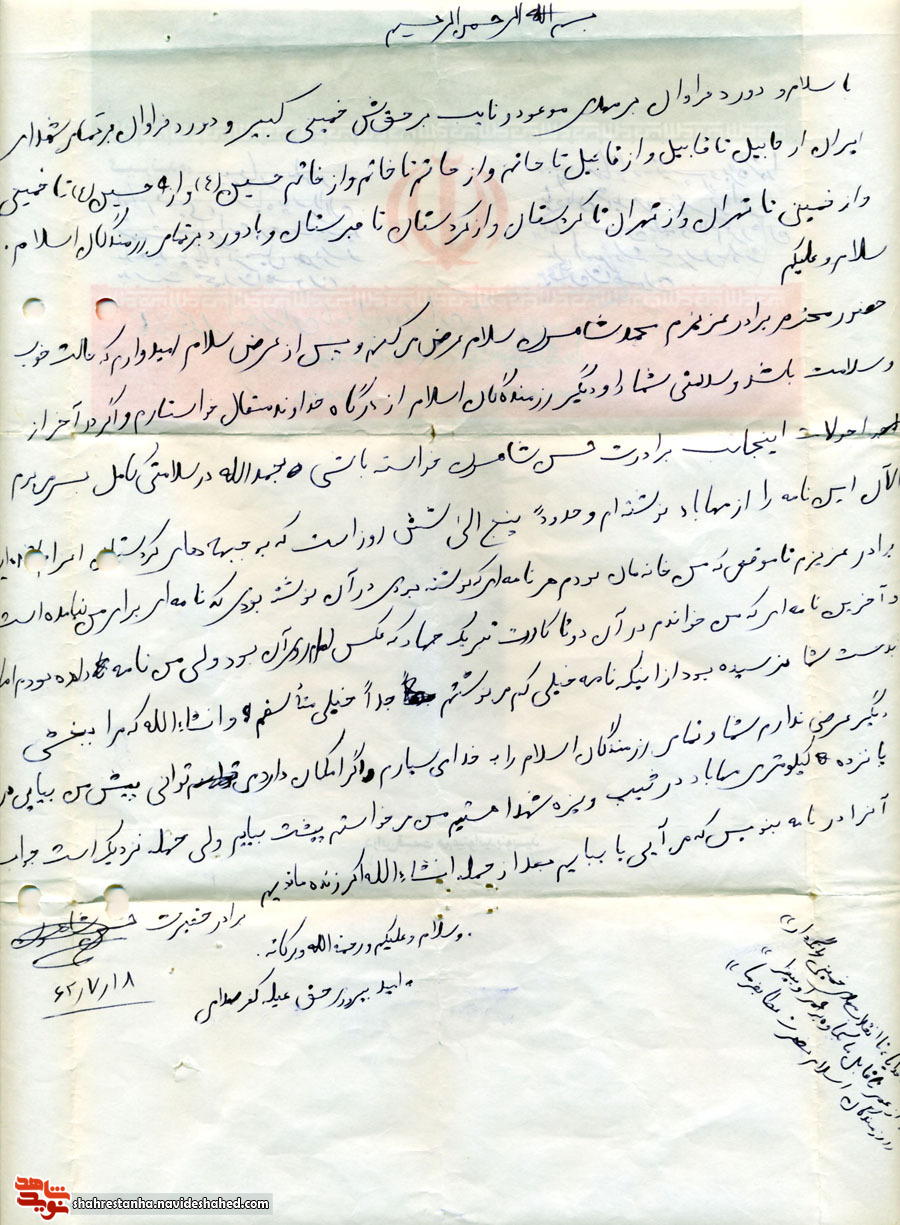 بسم الله الرحمن الرحیم
با سلام و درود فراوان بر مهدی موعود و نایب بر حقش خمینی کبیر و درود فراوان بر تمامی شهدای
ایران از هابیل تا قابیل و از قابیل تا حاتم و از حاتم تا خاتم و از خاتم حسین (ع) و از حسین (ع) تا خمینی
و از خمینی تا تهران و از تهران تا کردستان و از کردستان تا و با درود بر تمامی رزمندگان اسلام.
سلام و علیکم
حضور محترم برادر عزیزم محمد سلام عرض می کنم و پس از عرض سلام امیدوارم که حالت خوب
و سلامت باشد و سلامتی شما و دیگر رزمندگان اسلام از درگاه خداوند متعال خواستارم و اگر از
احوالات اینجانب برادرت حسن خواسته باشی بحمدالله در سلامتی کامل بسر می برم
الآن این نامه را از مهاباد نوشته ام و حدوداً پنج الی شش روز است که به جبهه های کردستان
برادر عزیزم تا موقعی که من خانه مان بودم هر نامه ای که نوشته بودی در آن نوشته بودی که نامه ای برای من نیامده است
و آخرین نامه ای که من خواندم در آن دو تا کارت تبریک بود که عکس آن بود ولی من نامه داده بودم اما
بدست شما نرسیده بود از اینکه نامه خیلی کم می نوشتم جداً خیلی متأسفم و انشاءالله که مرا ببخشی
دیگر عرضی ندارم شما و تمامی رزمندگان اسلام را به خدا می سپارم اگر امکان داردی توانی پیش من بیایی در
پانزده کیلومتری مهاباد در تیپ ویژه شهدا هستیم من می خواستم پیشت بیایم ولی حمله نزدیک است جواب
آنرا در نامه بنویس که می آیی یا بیایم بعد از حمله انشاءالله اگر زنده ماندیم
برادر حقیرت
۶۲/۷/۱۸
والسلام و علیکم و رحمة الله و برکاته.
به امید پیروزی حق علیه کفر صدامی
خدایا خدایا تا انقلاب مهدی خمینی را نگهدار
از عمر ما بکاه و بر عمر او بیفزا
رزمندگان اسلام نصرت عطا بفرما
نوید شاهد
shahrestanha.navideshahed.com